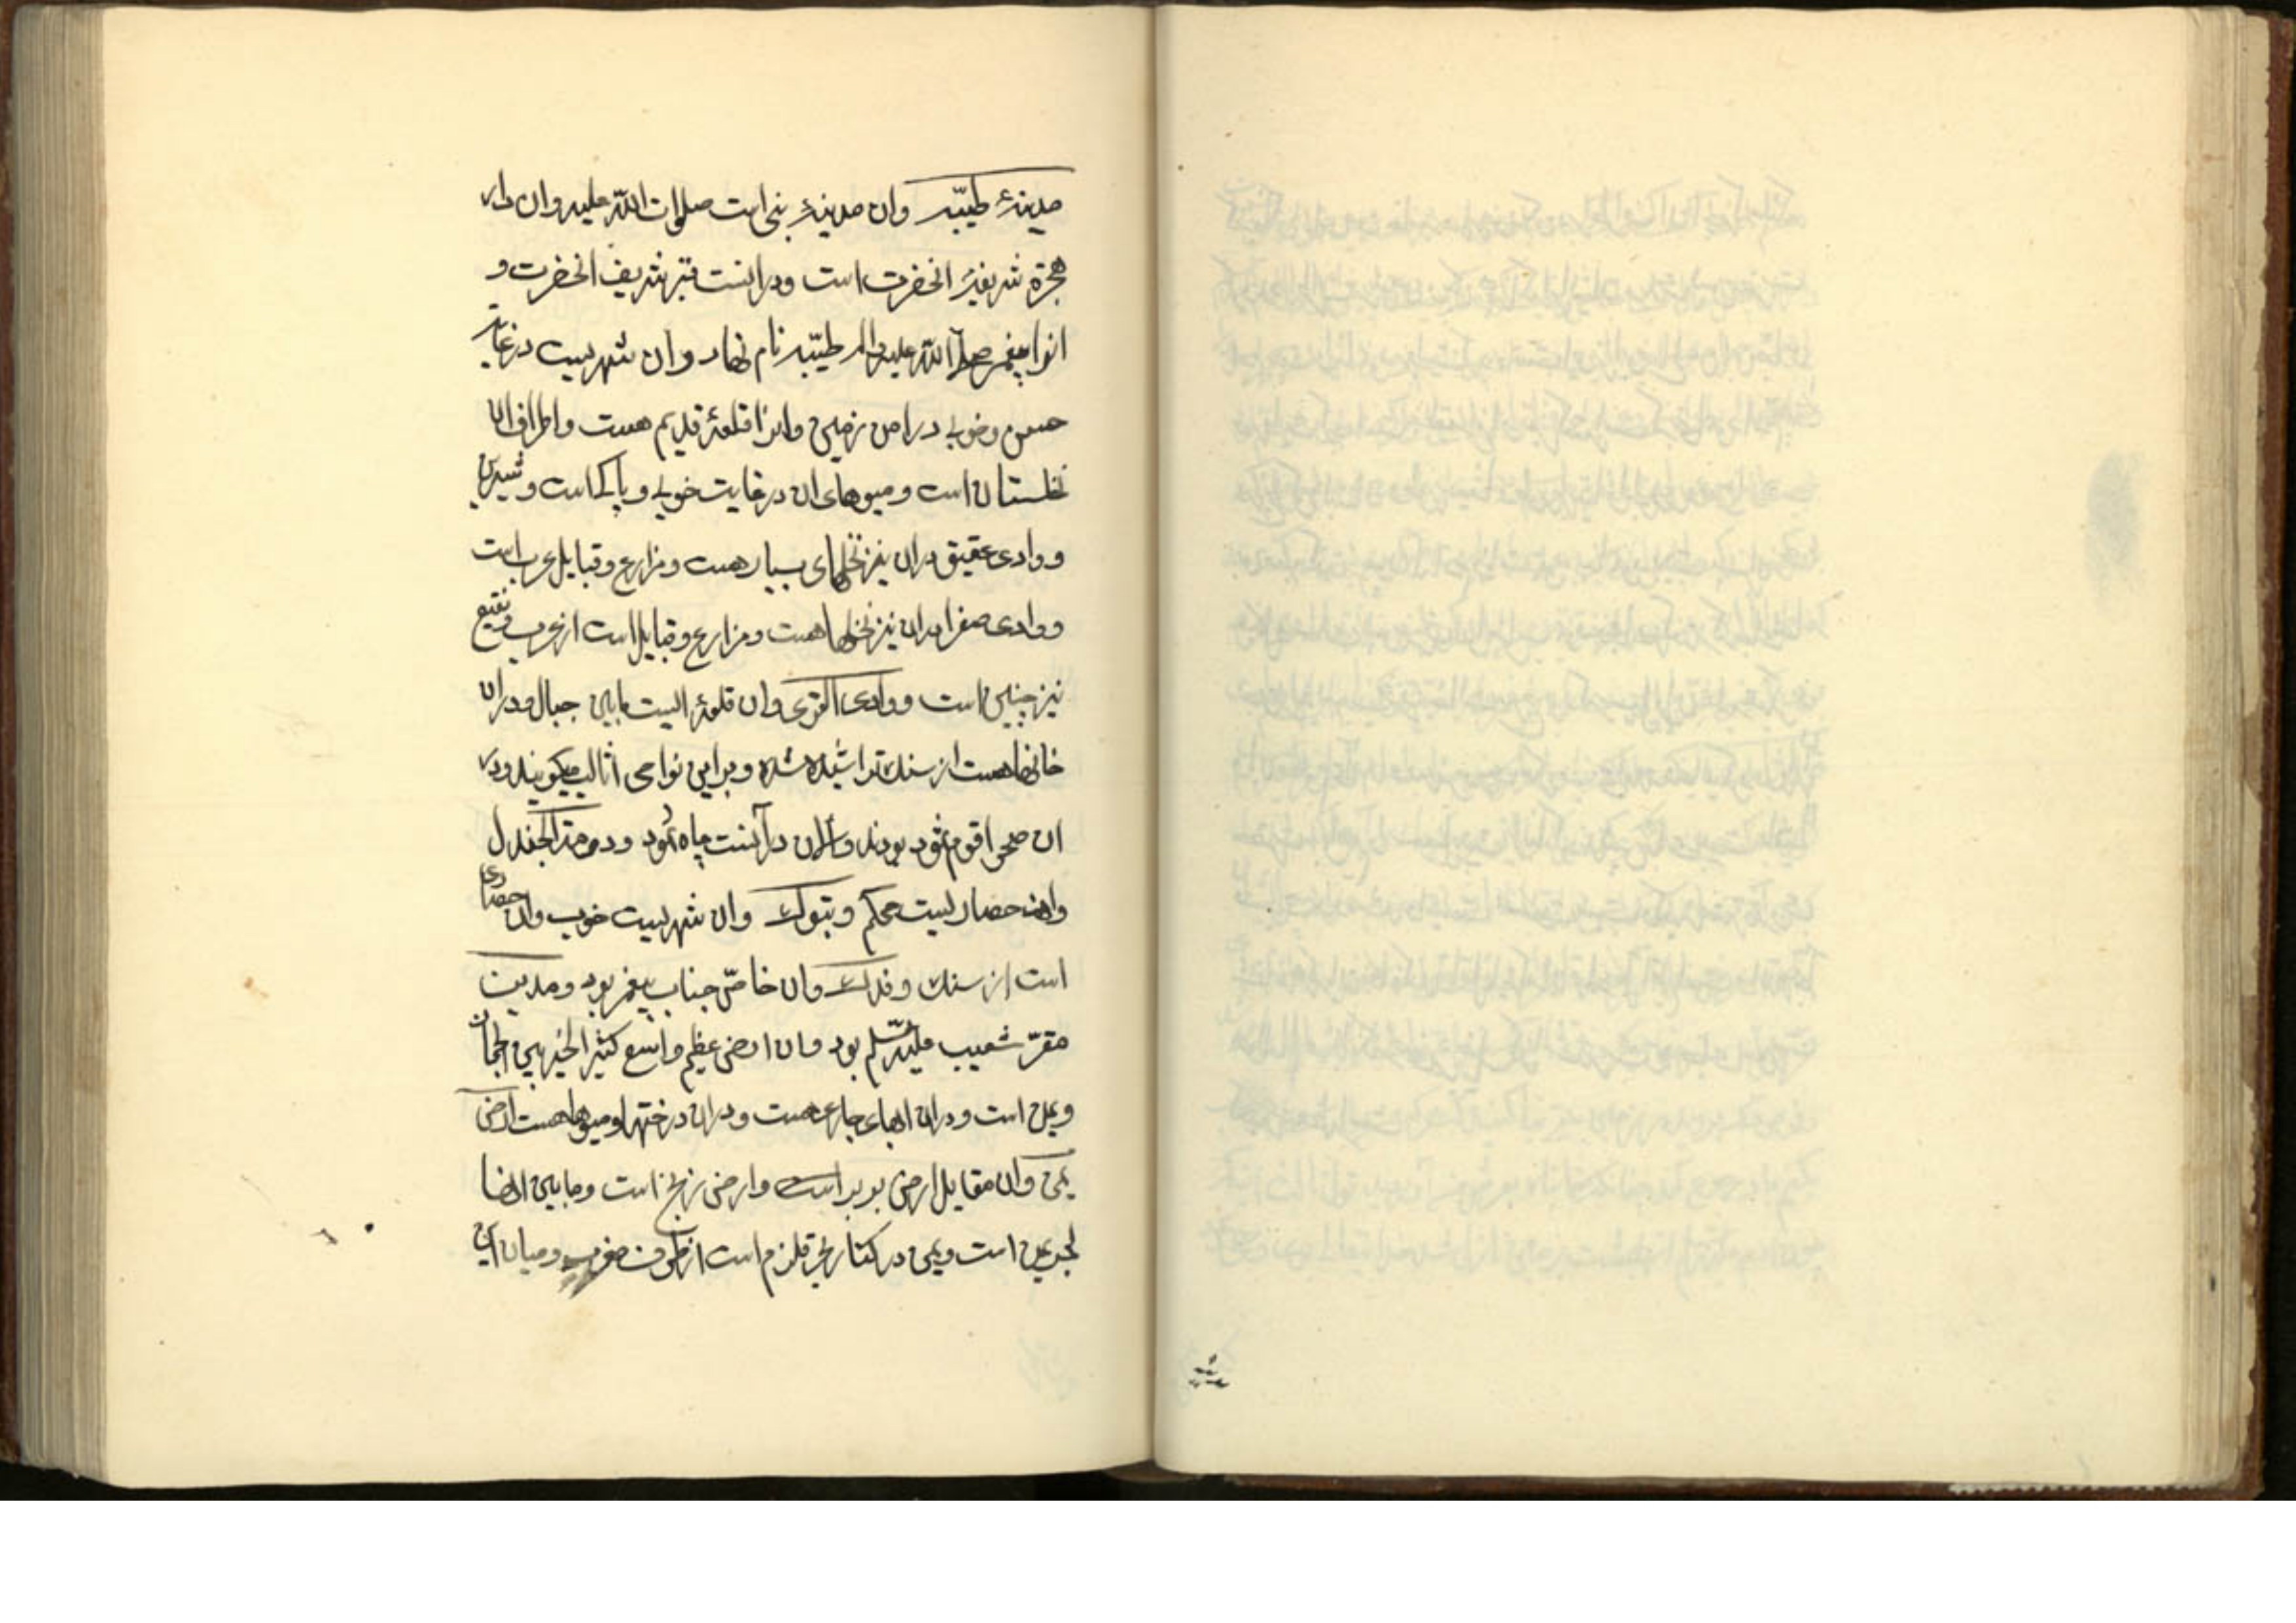 مدینهٔ طیّبه وان مدینهٔ نبی است صلوات الله علیه وان دار
هجرة شریفهٔ انحضرت است ودرانست قبر شریف انحضرت و
انرا پیغمبر صلی الله علیه واله طیّبه نام نهاد وان شهریست در غایت
حسن وخوبی در امن زمین وانرا قلعهٔ قدیم هست واطراف ان
نخلستان است ومیوهای ان در غایت خوبی و پاکی است وشیرین
ووادی عقیق دران نیز نخلهای بسیار هست ومزارع وقبایل عرب است
ووادی صفرا دران نیز نخلها هست ومزارع وقبایل است از عرب وبقیع
نیز چنین است ووادی القری وان قلعهٔ الیست مابین جبال ودران
خانها هست از سنك تراشیده شده وبر این نواحی اثالب میکویند ودر
ان صحرا قوم ثمود بودند والان درآنست چاه ثمود ودومة الجندل
وان حصاریست محکم وتبوك وان شهریست خوب وان حصاری
است از سنك وفدك وان خاصّ جناب پیغمبر بود ومدین
مقرّ شعیب علیه السّلم بود وان ارض عظیم واسع کثیر الخیر
ویمن است ودران انهار جاری هست ودران درختها ومیوها هست ارض
یمن وان مقابل ارض بربر است وارض زنج است ومابین انها
بحر یمن است ویمن در کنار بحر قلزم است از طرف مغرب ومیان این